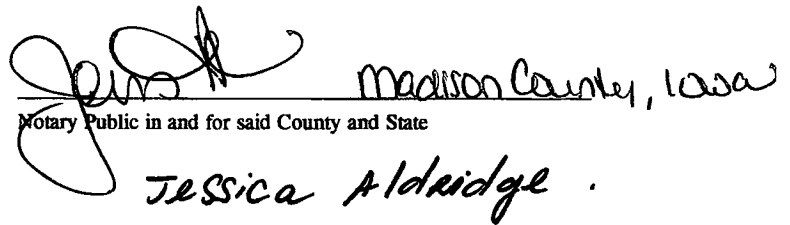 Madison County, Iowa
Notary Public in and for said County and State
Jessica Aldridge.